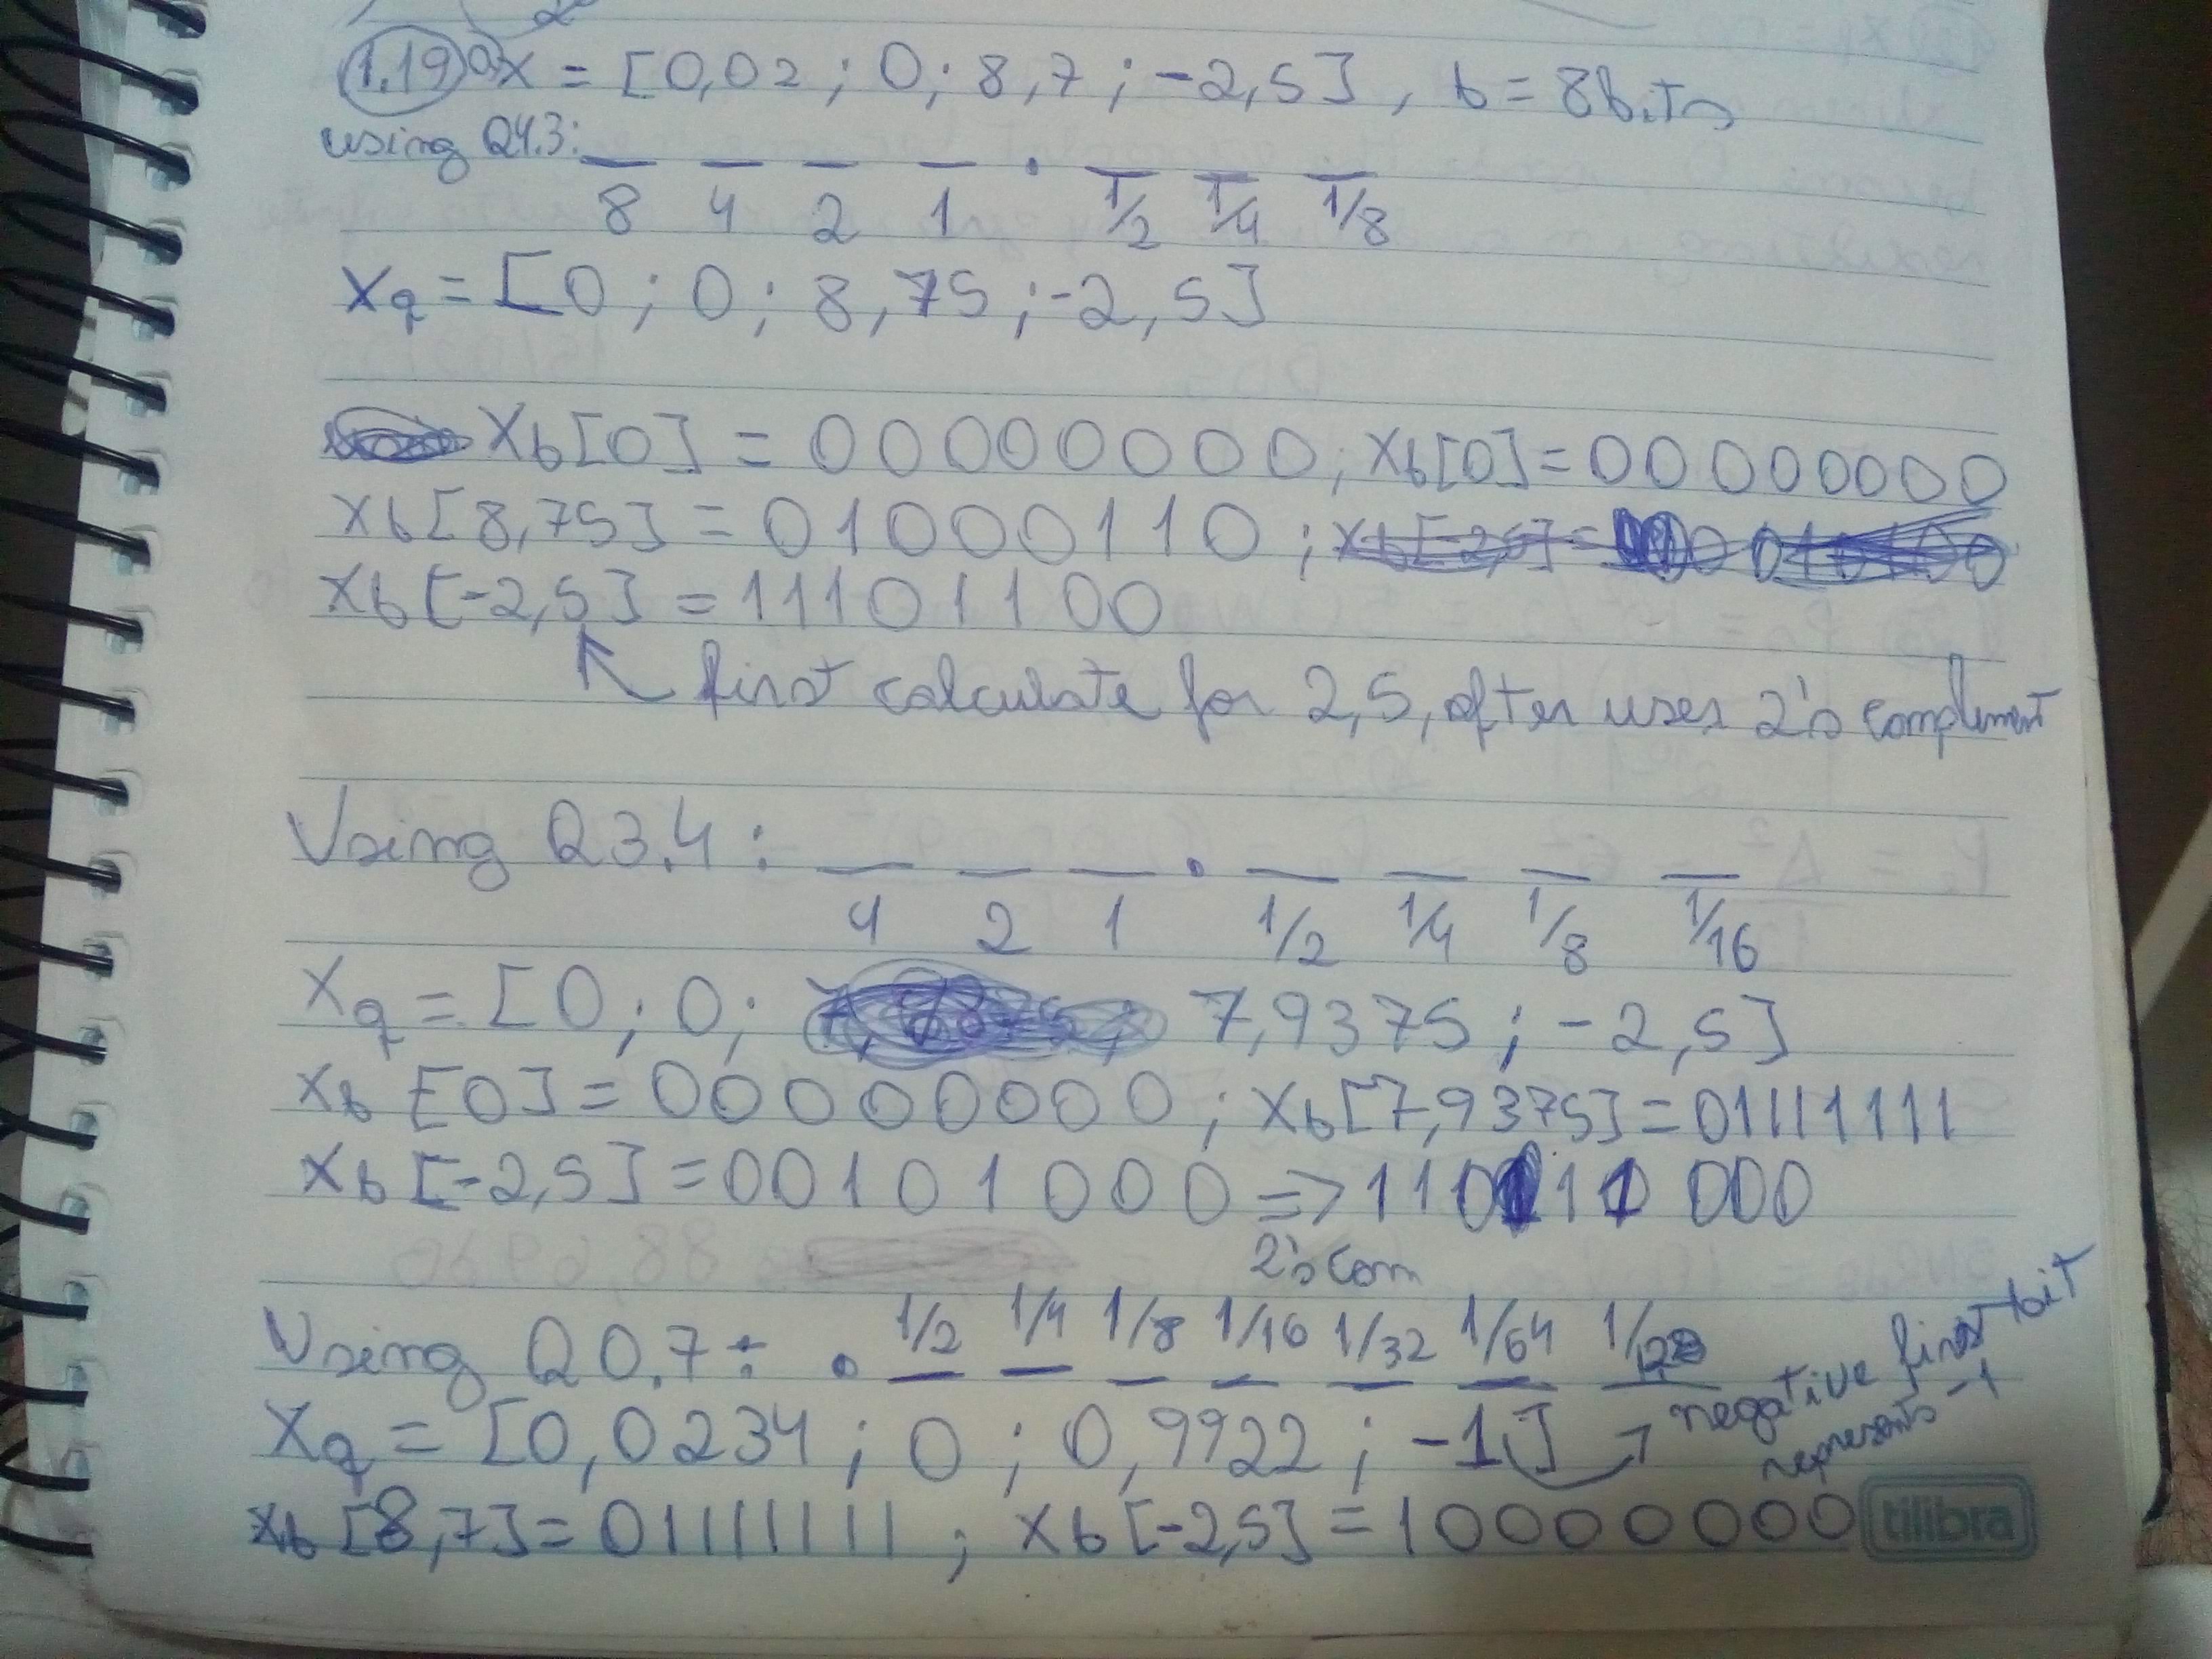 1.19 a) x = [0,02 ; 0 ; 8,7 ; -2,5] , b = 8bits
using Q4.3: _ _ _ _ . _ _ _
8 4 2 1 1/2 1/4 1/8
xq = [0 ; 0 ; 8,75 ; -2,5]
Xb[0] = 00000000 ; Xb[0] = 00000000
Xb[8,75] = 01000110 ;
Xb[-2,5] = 11101100
first calculate for 2,5, after uses 2's complement
Using Q3.4 : _ _ _ . _ _ _ _
4 2 1 1/2 1/4 1/8 1/16
Xq = [0 ; 0 ; 7,9375 ; -2,5]
Xb [0] = 00000000 ; Xb[7,9375] = 01111111
Xb [-2,5] = 00101000 =>
2's com
Using Q0.7 : . 1/2 1/4 1/8 1/16 1/32 1/64 1/128
Xq = [0,0234 ; 0 ; 0,9922 ; -1]
negative first bit
represents -1
Xb [8,7] = 01111111 ; Xb[-2,5] = 10000000
tilibra